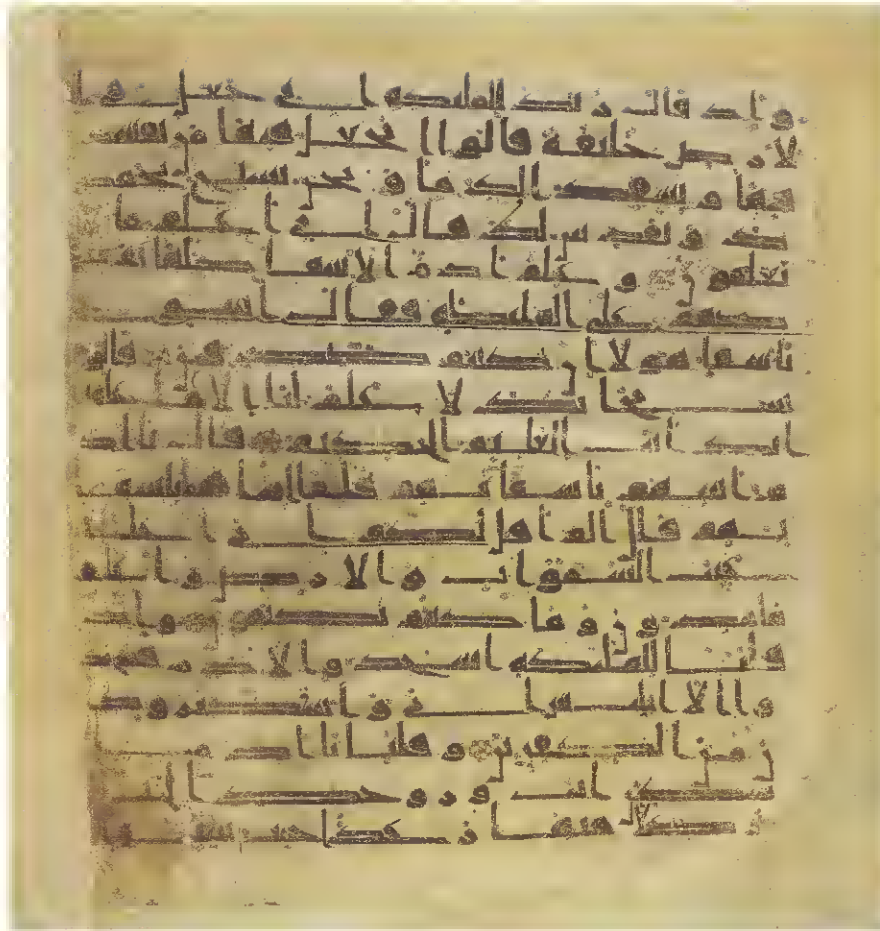 واذ قال ربك للملئكه اني جعل في ا
لارض خليفة قالوا اتجعل فيها من يفسد
فيها ويسفك الدما ونحن نسبح بحمد
ك ونقدس لك قال اني اعلم ما لا
تعلمون وعلم ادم الاسما كلها ثم عر
ضهم على الملئكه فقال انبوني
باسما هولا ان كنتم صدقين قالوا
سبحنك لا علم لنا الا ما علمتنا
انك انت العليم الحكيم قال يادم
انبهم باسمائهم فلما انباهم باسما
ئهم قال الم اقل لكم اني اعلم
غيب السموات والارض واعلم
ما تبدون وما كنتم تكتمون واذ
قلنا للملئكه اسجدوا لادم فسجد
وا الا ابليس ابى واستكبر وكا
ن من الكفرين وقلنا يادم ا
سكن انت وزوجك الجنة
وكلا منها رغدا حيث شئتما